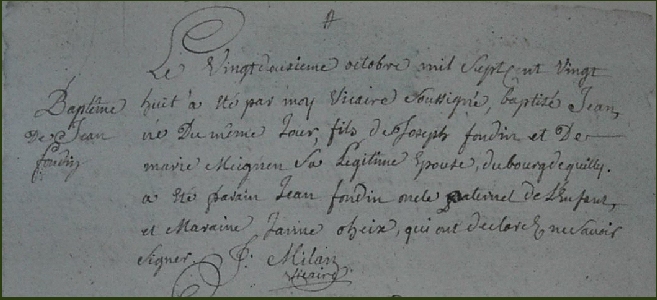 Le Vingtdeuxieme octobre mil Sept Cent Vingt
Baptême
De Jean
fondin
huit a eté par moy Vicaire Soussigné, baptisé Jean,
né Du même Jour, fils de Joseph fondin et De
marie Mïegnen Sa Legitime Epouse, du bourg de quilly.
a eté parain Jean fondin oncle paternel de L'Enfant,
et Maraine Janne oheix, qui ont declaré ne Savoir
Signer. P. Milan
Vicaire